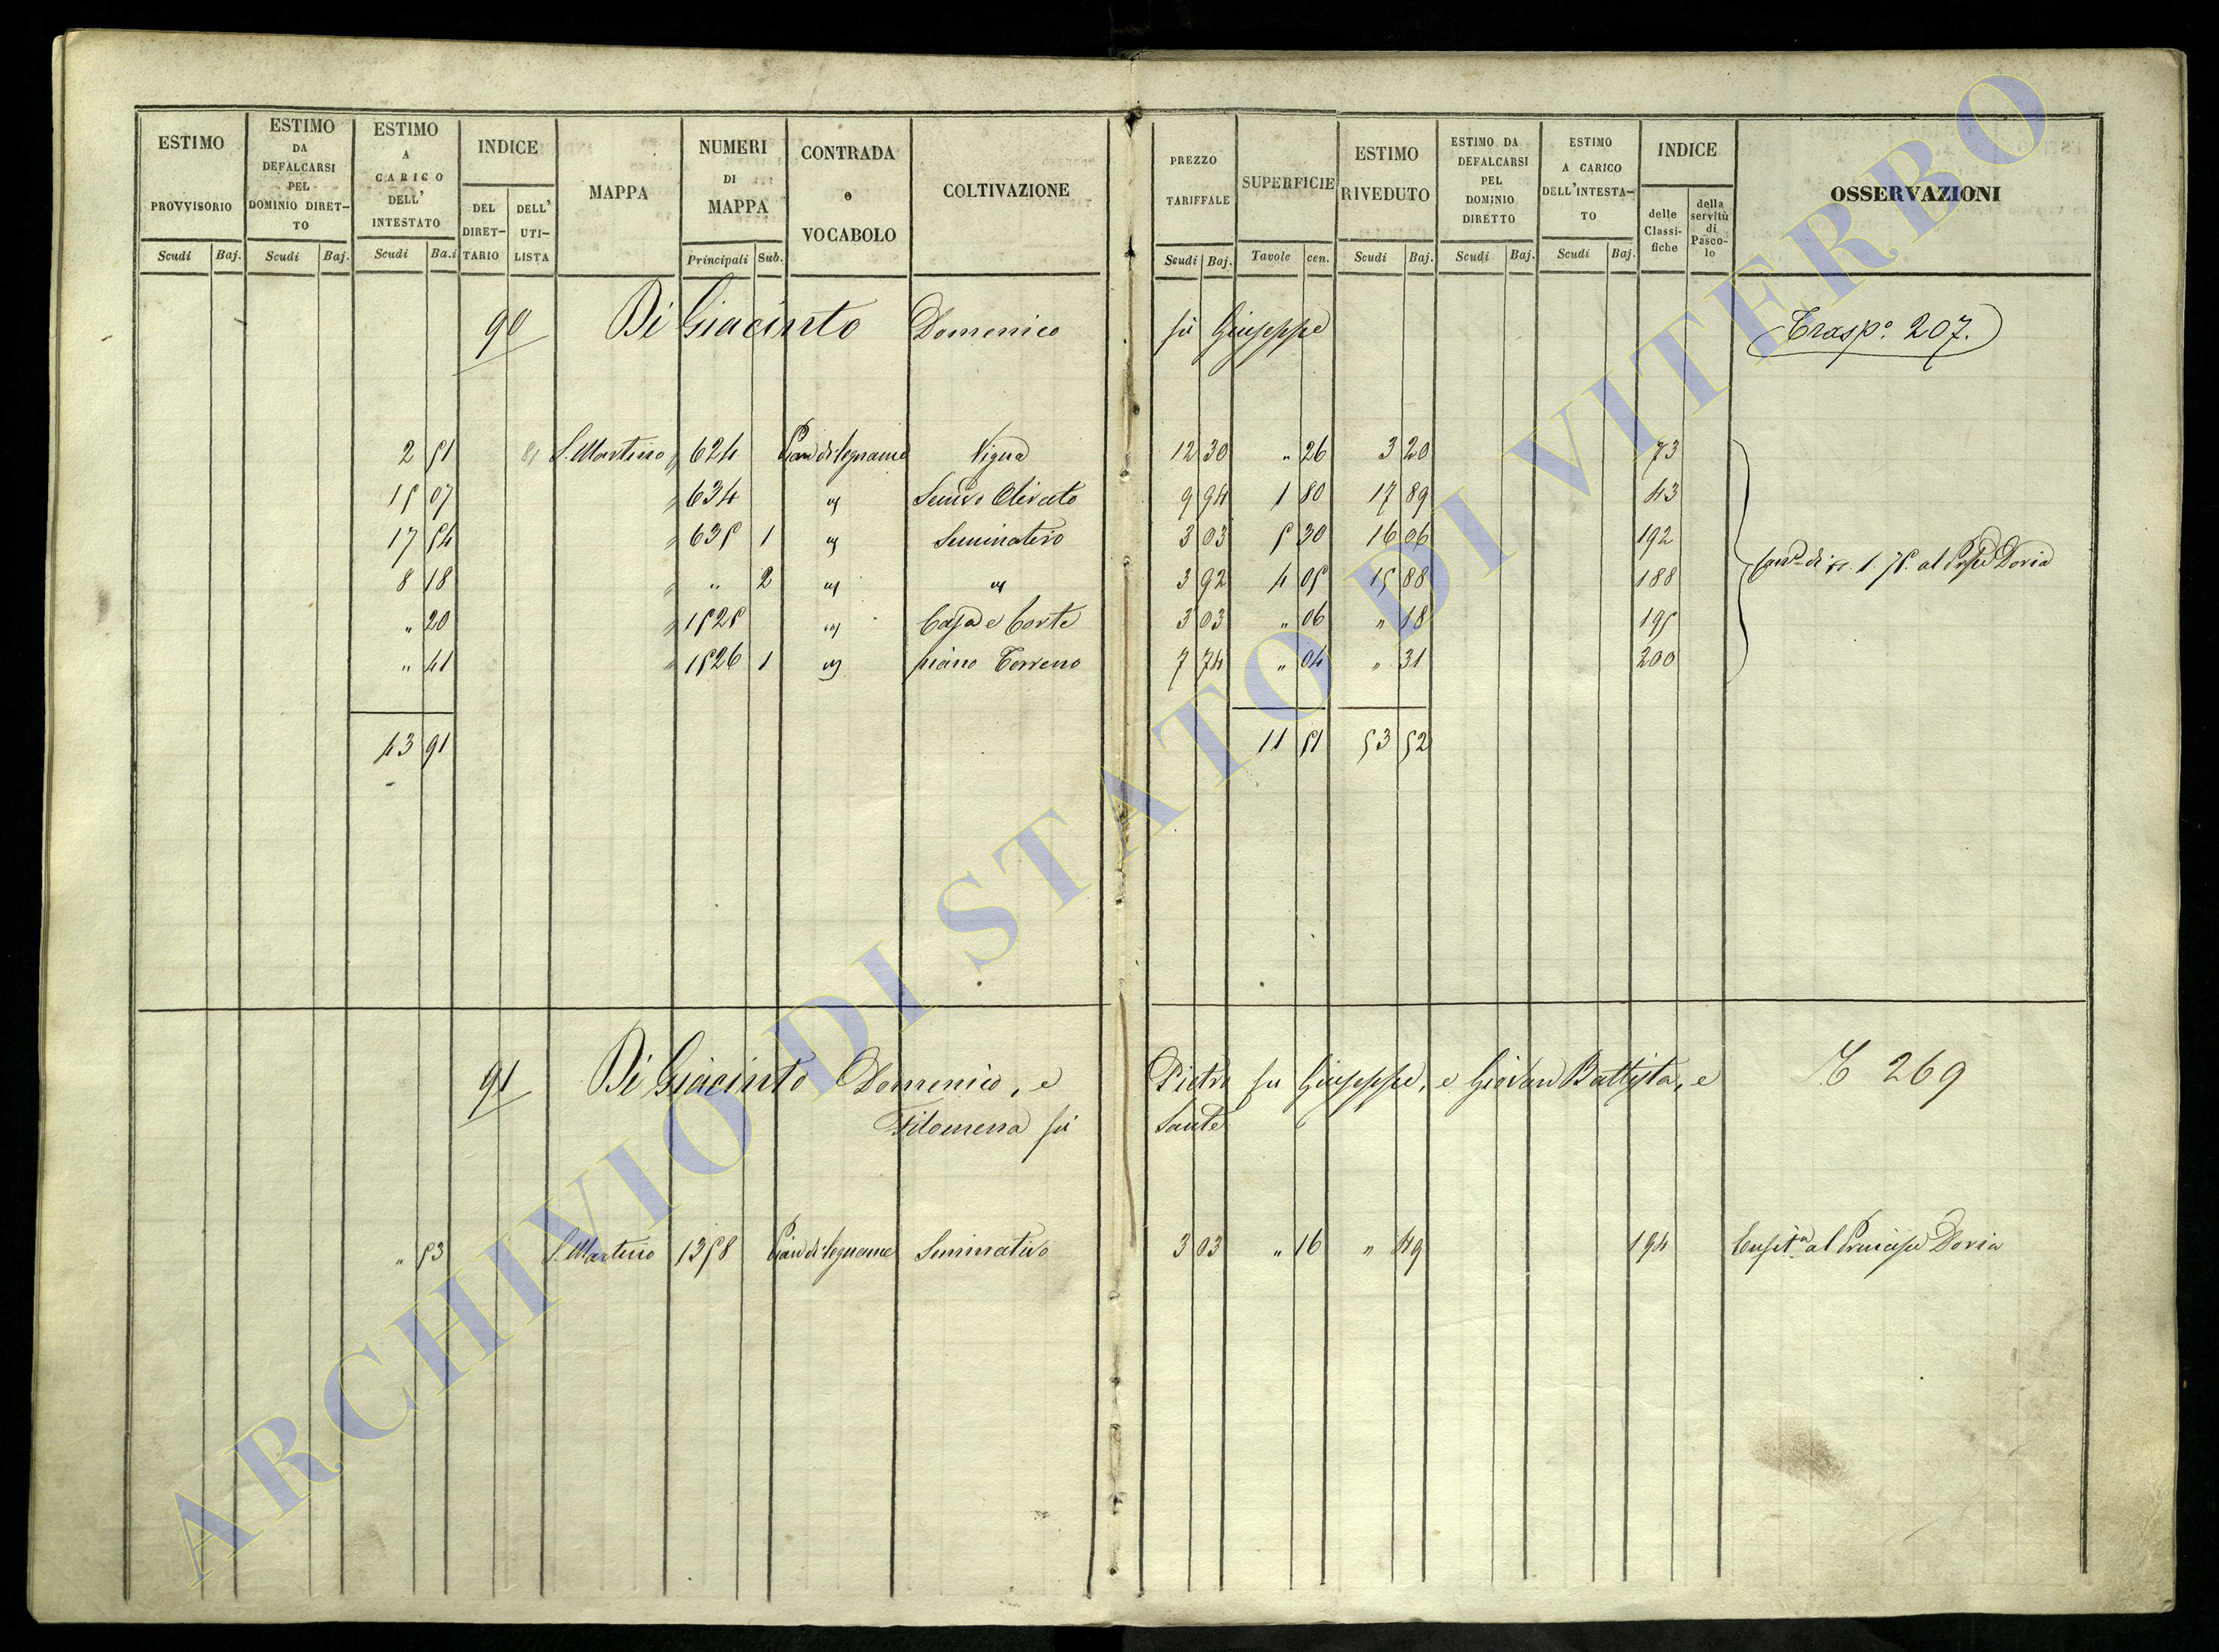 ESTIMO PROVVISORIO Scudi Baj.
ESTIMO DA DEFALCARSI PEL DOMINIO DIRET-TO Scudi Baj.
ESTIMO A CARICO DELL' INTESTATO Scudi Ba.i
INDICE DEL DIRET-TARIO DELL' UTI-LISTA
MAPPA
NUMERI DI MAPPA Principali Sub.
CONTRADA o VOCABOLO
COLTIVAZIONE
PREZZO TARIFFALE Scudi Baj.
SUPERFICIE Tavole cen.
ESTIMO RIVEDUTO Scudi Baj.
ESTIMO DA DEFALCARSI PEL DOMINIO DIRETTO Scudi Baj.
ESTIMO A CARICO DELL'INTESTA-TO Scudi Baj.
INDICE delle Classi-fiche della servitù di Pasco-lo
OSSERVAZIONI
90 Di Giacinto Domenico fù Giuseppe Trasp.o 207.
2 51 S. Martino 624 Pian di legname Vigna 12 30 " 26 3 20 73
15 07 634 Olivato 9 94 1 80 17 89 43
17 54 635 1 Seminativo 3 03 5 30 16 06 192
8 18 " 2 3 92 4 05 15 88 188
" 20 1525 Casa e Corte 3 03 " 06 " 18 195
" 41 1526 1 piano Terreno 7 74 " 04 " 31 200
al Doria
43 91 11 51 53 52
91 Di Giacinto Domenico, e Pietro fu Giuseppe, e Giovan Battista, e T 269
Filomena fù Sante
" 53 S. Martino 1358 Pian di legname Seminativo 3 03 " 16 " 49 194 al Principe Doria
ARCHIVIO DI STATO DI VITERBO